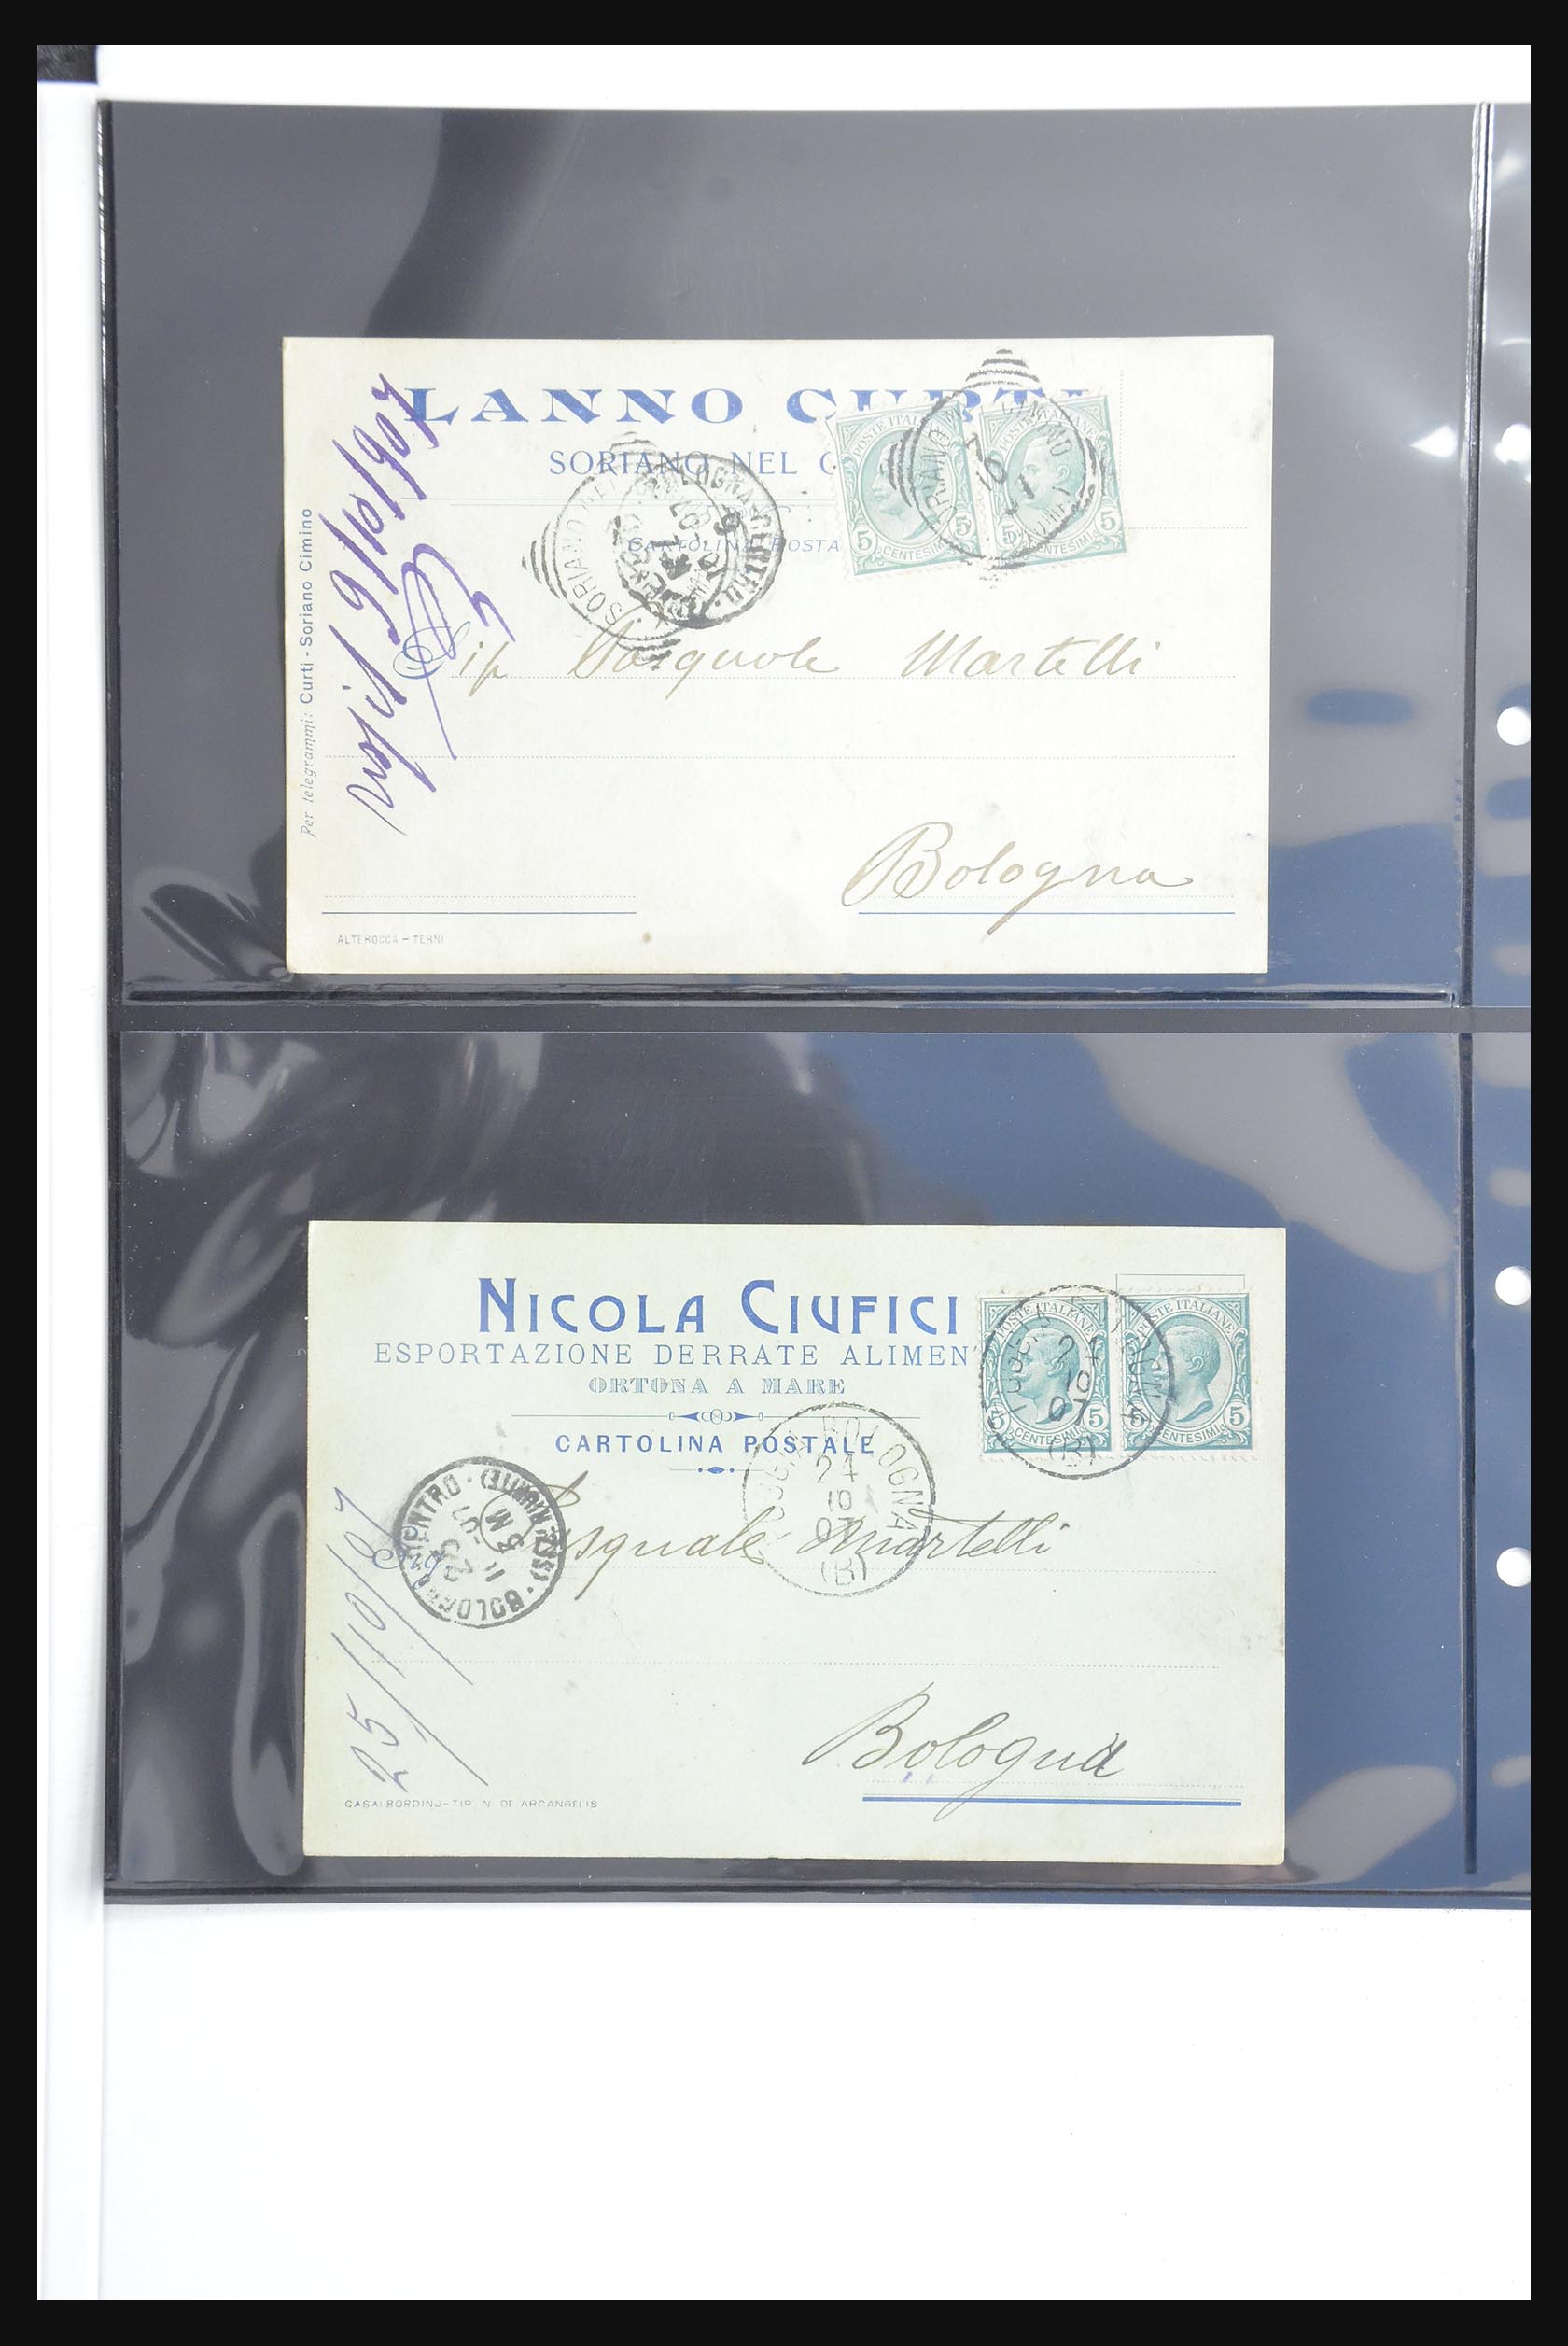 LANNO CURTI
SORIANO NEL C
CARTOLINA POSTA
POSTE ITALIANE
5 CENTESIMI 5
POSTE ITALIANE
5 CENTESIMI 5
SORIANO NEL CIMINO
10
BOLOGNA CENTRO
Per telegrammi: Curti - Soriano Cimino
9/10/907
Sig Pasquale Martelli
Bologna
ALTEROCCA - TERNI
NICOLA CIUFICI
ESPORTAZIONE DERRATE ALIMEN
ORTONA A MARE
CARTOLINA POSTALE
POSTE ITALIANE
5 CENTESIMI 5
POSTE ITALIANE
5 CENTESIMI 5
24
10
07
(B)
BOLOGNA
24
10
07
(B)
BOLOGNA CENTRO
Sig Pasquale Martelli
25/10/07
Bologna
CASALBORDINO-TIP. N. DE ARCANGELIS